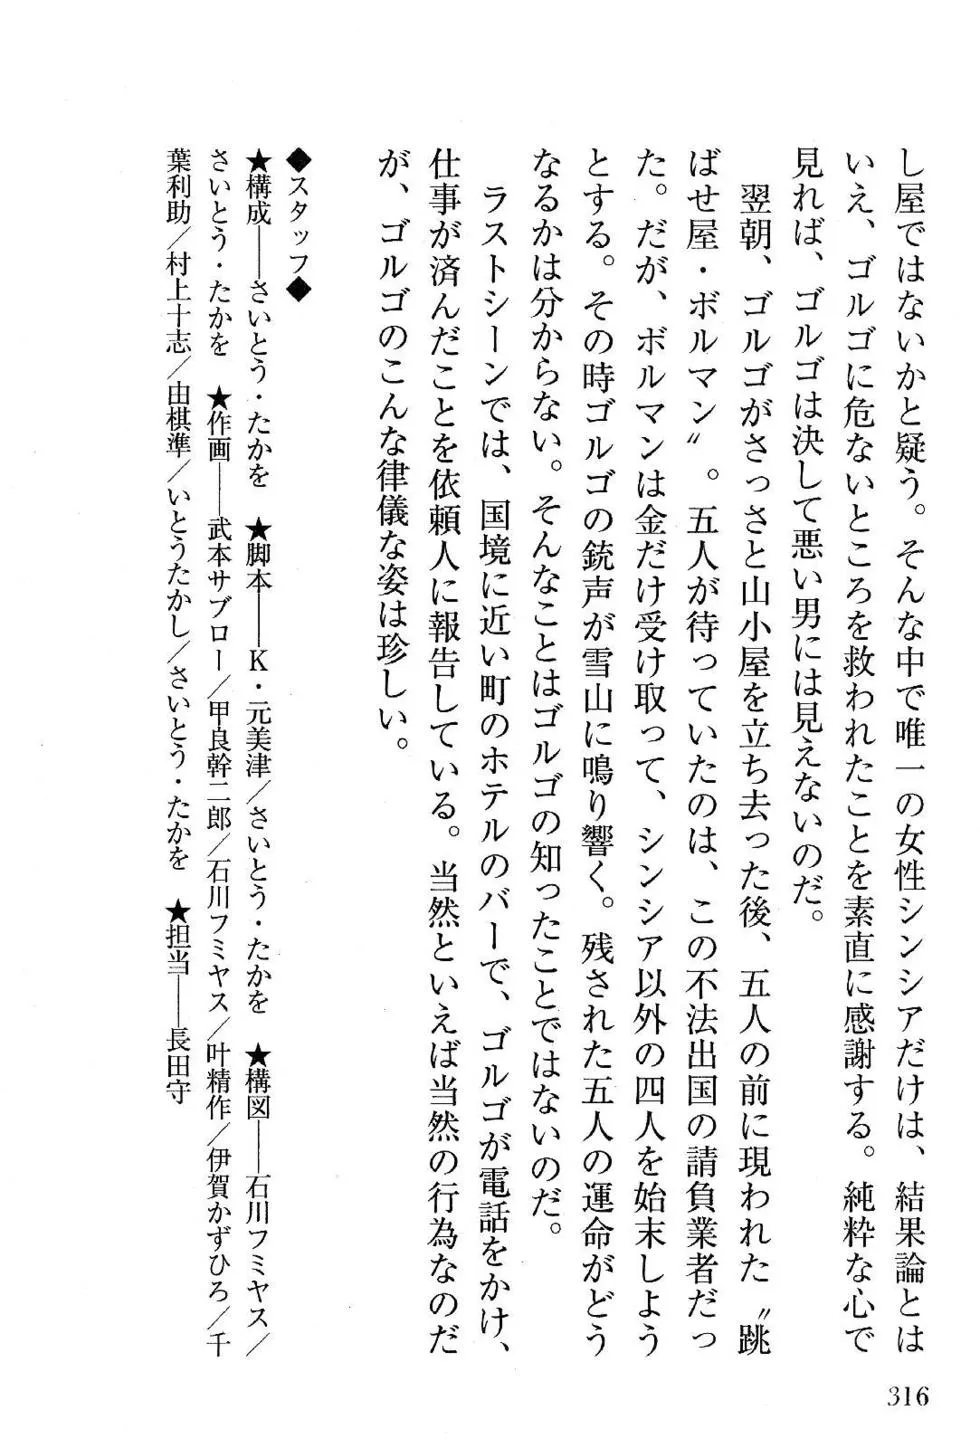 し屋ではないかと疑う。そんな中で唯一の女性シンシアだけは、結果論とは
いえ、ゴルゴに危ないところを救われたことを素直に感謝する。純粋な心で
見れば、ゴルゴは決して悪い男には見えないのだ。
翌朝、ゴルゴがさっさと山小屋を立ち去った後、五人の前に現われた〝跳
ばせ屋・ボルマン〟。五人が待っていたのは、この不法出国の請負業者だっ
た。だが、ボルマンは金だけ受け取って、シンシア以外の四人を始末しよう
とする。その時ゴルゴの銃声が雪山に鳴り響く。残された五人の運命がどう
なるかは分からない。そんなことはゴルゴの知ったことではないのだ。
ラストシーンでは、国境に近い町のホテルのバーで、ゴルゴが電話をかけ、
仕事が済んだことを依頼人に報告している。当然といえば当然の行為なのだ
が、ゴルゴのこんな律儀な姿は珍しい。
◆スタッフ◆
★構成――さいとう・たかを　★脚本――K・元美津／さいとう・たかを　★構図――石川フミヤス／
さいとう・たかを　★作画――武本サブロー／甲良幹二郎／石川フミヤス／叶精作／伊賀かずひろ／千
葉利助／村上十志／由棋準／いとうたかし／さいとう・たかを　★担当――長田守
316